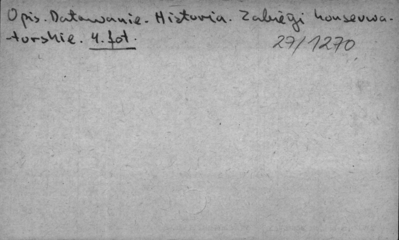 Opis. Datowanie. Historia. Zabiegi konserwa-
torskie. 4. fot.
27/1270